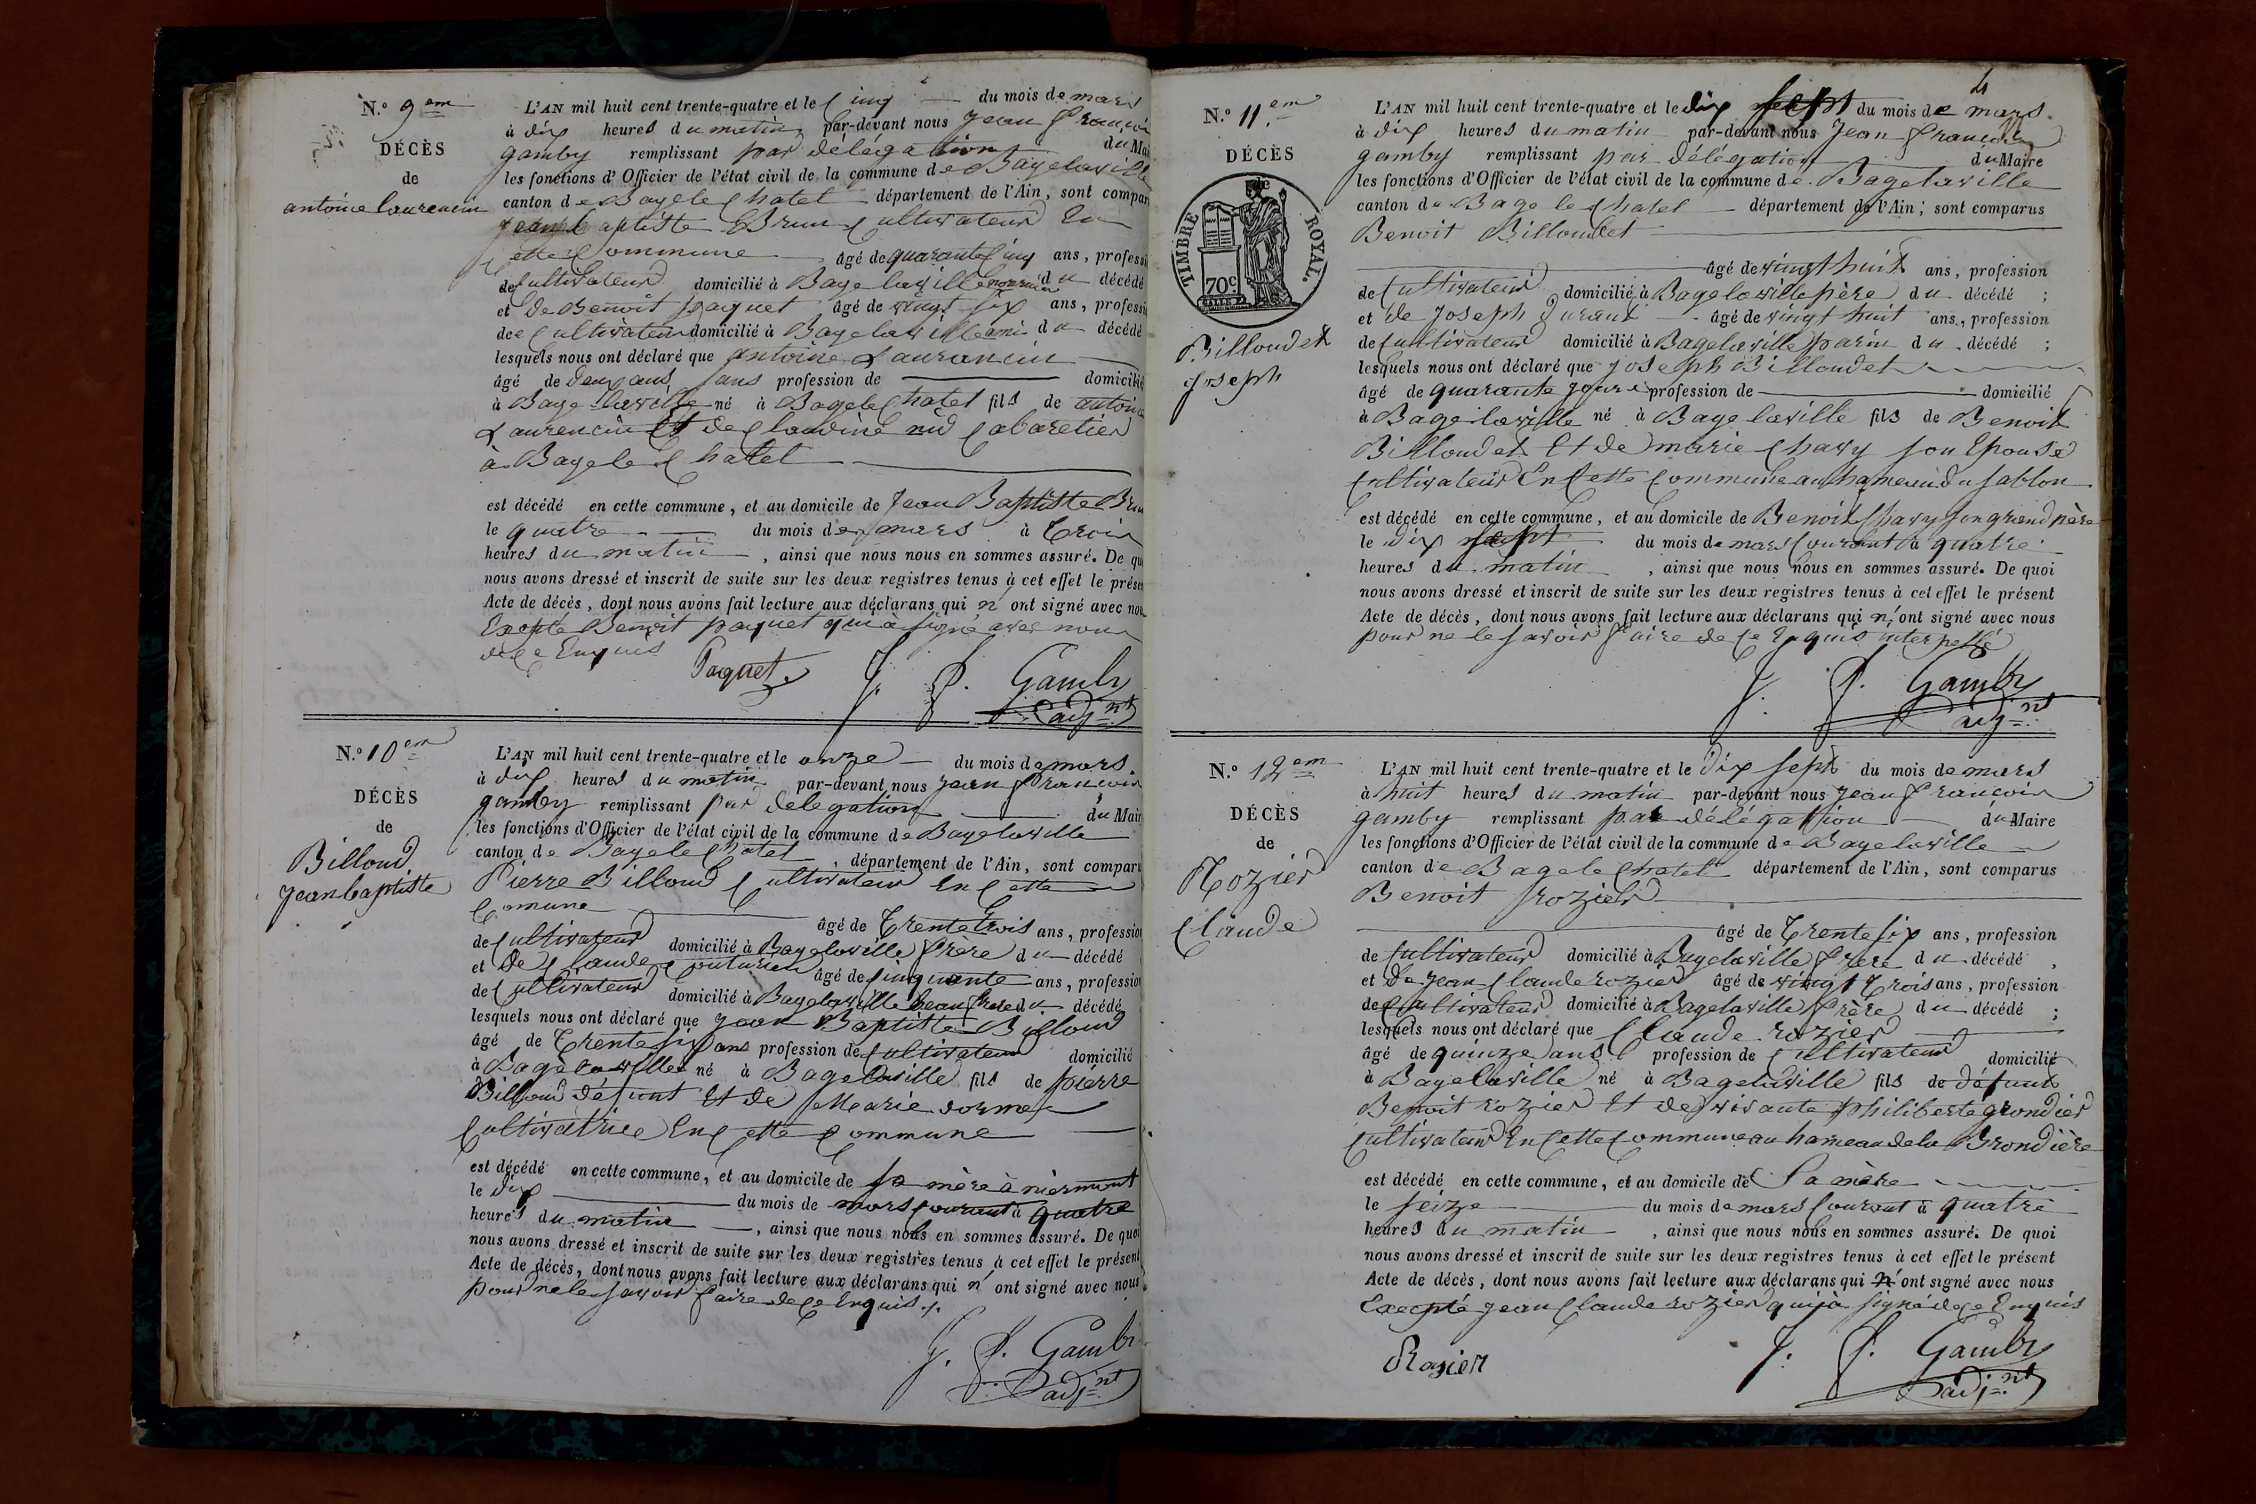 N.º 9em
DÉCÈS
de
antoine laurencin
L'AN mil huit cent trente-quatre et le Cinq du mois de mars
à dix heures du matin, par-devant nous jean françois
gamby remplissant par délégation du Mai
les fonctions d'Officier de l'état civil de la commune de Bagelaville
canton de Bagelechatel département de l'Ain, sont compar
jean baptiste Brun Cultivateur En
Cette Commune âgé de quarante Cinq ans, professi
de Cultivateur domicilié à Bagelaville nourricier du décédé
et De Benoit paquet âgé de vingt six ans, professi
de Cultivateur domicilié à Bagelaville ami du décédé
lesquels nous ont déclaré que antoine Laurancin
âgé de deux ans sans profession de domicilié
à Bage laville né à Bagele Chatel fils de antoine
Laurencin Et de Claudine nid Cabaretier
à Bagele Chatel
est décédé en cette commune, et au domicile de Jean Baptiste Brun
le quatre du mois de mars à trois
heures du matin, ainsi que nous nous en sommes assuré. De qu
nous avons dressé et inscrit de suite sur les deux registres tenus à cet effet le prése
Acte de décès, dont nous avons fait lecture aux déclarans qui n'ont signé avec nou
Excepté Benoit paquet qui a signé avec nous
de ce Enquis
Paquet
J. f. Gamby
adjnt
N.º 10em
DÉCÈS
de
Billoud
jean baptiste
L'AN mil huit cent trente-quatre et le onze du mois de mars
à dix heures du matin par-devant nous jean françois
gamby remplissant par delegation du Mair
les fonctions d'Officier de l'état civil de la commune de Bagelaville
canton de Bagele Chatel, département de l'Ain, sont compar
Pierre Billoud Cultivateur En Cette
Comune âgé de Trente trois ans, profession
de Cultivateur domicilié à Bagelaville frère du décédé
et De Claude Couturier âgé de Cinquante ans, profession
de Cultivateur domicilié à Bagelaville beau frère du décédé
lesquels nous ont déclaré que jean Baptiste Billoud
âgé de Trente six ans profession de Cultivateur domicilié
à Bagelaville né à Bagelaville fils de pierre
Billoud défunt Et de Marie dorme
Cultivatrice En Cette Commune
est décédé en cette commune, et au domicile de sa mère à niermont
le dix du mois de mars Courant à quatre
heures du matin, ainsi que nous nous en sommes assuré. De quoi
nous avons dressé et inscrit de suite sur les deux registres tenus à cet effet le présent
Acte de décès, dont nous avons fait lecture aux déclarans qui n'ont signé avec nous
pour ne le savoir faire de ce Enquis
J. f. Gamby
adjnt
4
N.º 11em
DÉCÈS
de
TIMBRE ROYAL.
70c
Billoudet
joseph
L'AN mil huit cent trente-quatre et le dix sept du mois de mars
à dix heures du matin par-devant nous Jean françois
gamby remplissant par délégation du Maire
les fonctions d'Officier de l'état civil de la commune de Bagelaville
canton de Bage le Chatel département de l'Ain; sont comparus
Benoit Billoudet
âgé de vingt huit ans, profession
de Cultivateur domicilié à Bagelaville père du décédé;
et de joseph âgé de vingt huit ans, profession
de Cultivateur domicilié à Bagelaville parin du décédé;
lesquels nous ont déclaré que joseph Billoudet
âgé de quarante jours profession de domicilié
à Bagelaville né à Bagelaville fils de Benoit
Billoudet Et de marie Chavy son Epouse
Cultivateur En Cette Commune au hameau du sablon
est décédé en cette commune, et au domicile de Benoit Chavy son grand père
le dix sept du mois de mars Courant à quatre
heures du matin, ainsi que nous nous en sommes assuré. De quoi
nous avons dressé et inscrit de suite sur les deux registres tenus à cet effet le présent
Acte de décès, dont nous avons fait lecture aux déclarans qui n'ont signé avec nous
pour ne le savoir faire de ce Enquis interpellé
J. f. Gamby
adjnt
N.º 12em
DÉCÈS
de
Rozier
Claude
L'AN mil huit cent trente-quatre et le Dix sept du mois de mars
à huit heures du matin par-devant nous jean françois
gamby remplissant par délégation du Maire
les fonctions d'Officier de l'état civil de la commune de Bagelaville
canton de Bagele Chatel département de l'Ain, sont comparus
Benoit rozier
âgé de Trente six ans, profession
de Cultivateur domicilié à Bagelaville frère du décédé,
et De jean Claude rozier âgé de vingt Trois ans, profession
de Cultivateur domicilié à Bagelaville frère du décédé;
lesquels nous ont déclaré que Claude rozier
âgé de quinze ans profession de Cultivateur domicilié
à Bagelaville né à Bagelaville fils de défunt
Benoit rozier Et de vivante philiberte grondier
Cultivateur En Cette Commune au hameau de la Brondière
est décédé en cette commune, et au domicile de Sa mère
le seize du mois de mars Courant à quatre
heures du matin, ainsi que nous nous en sommes assuré. De quoi
nous avons dressé et inscrit de suite sur les deux registres tenus à cet effet le présent
Acte de décès, dont nous avons fait lecture aux déclarans qui n'ont signé avec nous
Excepté jean Claude rozier qui a signé de ce Enquis
Rozier
J. f. Gamby
adjnt